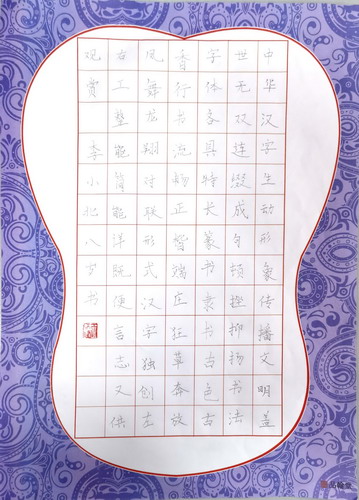 中华汉字生动形象传播文明盖
世无双连缀成句顿挫抑扬书法
字体各具特长篆书隶书古色古
香行书流畅正楷端庄狂草奔放
凤舞龙翔对联形式汉字独创左
右工整能简能详既便言志又供
观赏 李小八书